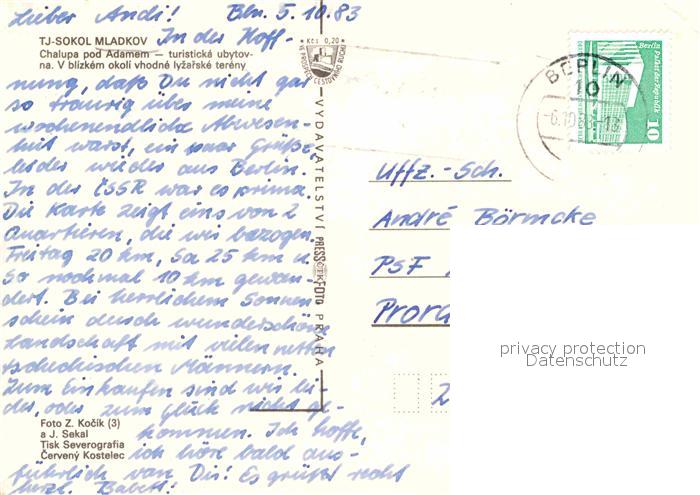 Lieber Andi! Bln. 5.10.83
TJ-SOKOL MLADKOV
Chalupa pod Adamem — turistická ubytov-
na. V blízkém okolí vhodné lyžařské terény
In der Hoff-
nung, daß Du nicht gar
so traurig über meine
wochenendliche Abwesen-
heit warst, ein paar Grüße
leider wieder aus Berlin.
In der ČSSR war es prima.
Die Karte zeigt eins von 2
Quartieren, die wir bezogen.
Freitag 20 km, Sa 25 km u.
So nochmal 10 km gewan-
dert. Bei herrlichem Sonnen
schein durch wunderschöne
Landschaft mit vielen netten
tschechischen Männern.
Zum Einkaufen sind wir lei-
der, oder zum Glück nicht ge-
kommen. Ich hoffe,
ich höre bald aus-
führlich von Dir! Es grüßt recht
herzl. Babett!
Foto Z. Kočík (3)
a J. Sekal
Tisk Severografia
Červený Kostelec
Kčs 0,20
VE PROSPĚCH CESTOVNÍHO RUCHU
VYDAVATELSTVÍ PRESSFOTO PRAHA
ČTK
BERLIN
10
-6.10.83
Berlin Palast der Republik
10
Uffz.-Sch.
André Börmcke
PSF
Prora
2
privacy protection
Datenschutz